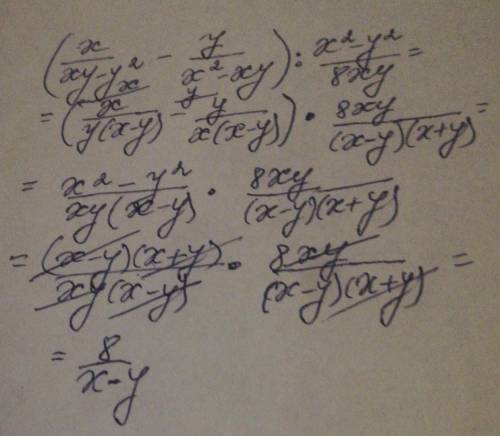 (x/(xy-y²) - y/(x²-xy)) : (x²-y²)/(8xy) =
= (x/(y(x-y)) - y/(x(x-y))) · 8xy/((x-y)(x+y)) =
= (x²-y²)/(xy(x-y)) · 8xy/((x-y)(x+y))
= (x-y)(x+y)/(xy(x-y)) · 8xy/((x-y)(x+y)) =
= 8/(x-y)